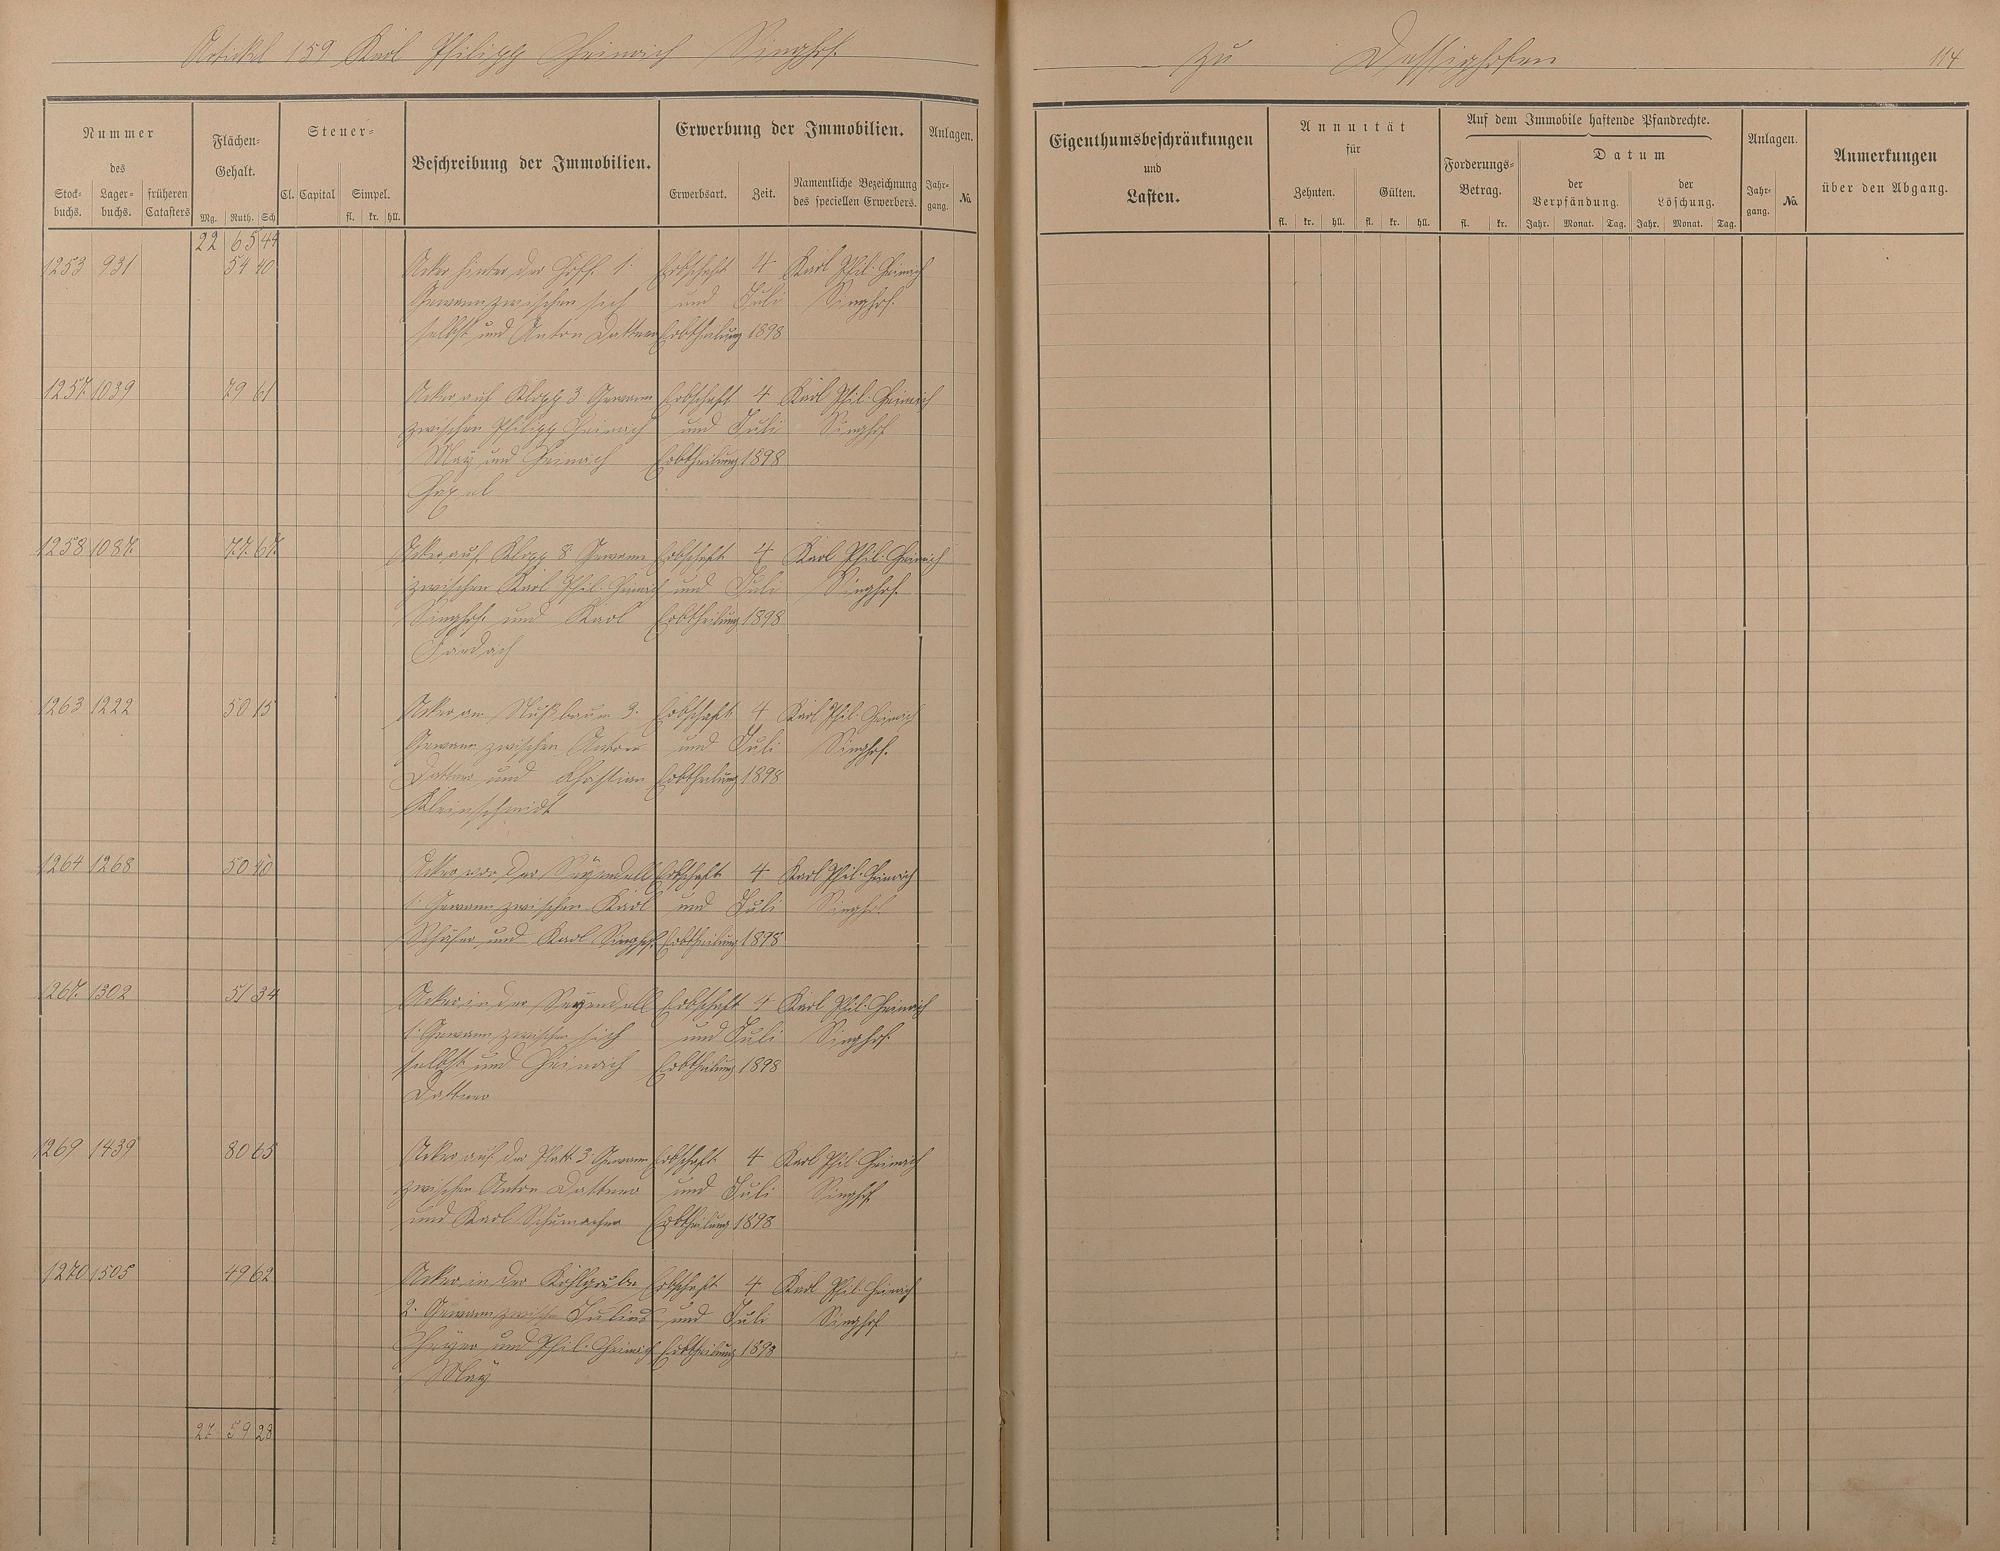 Artickel 159 Karl Philipp Heinrich Singhof.
zu Dessighofen
114
Nummer
des
Stock-
buchs.
Lager-
buchs.
früheren
Catasters
Flächen-
Gehalt.
Mg. Ruth. Sch
Steuer-
Cl. Capital Simpel.
fl. kr. hll.
Beschreibung der Immobilien.
Erwerbung der Immobilien.
Erwerbsart. Zeit.
Namentliche Bezeichnung
des speciellen Erwerbers.
Anlagen.
Jahr-
gang.
No.
Eigenthumsbeschränkungen
und
Lasten.
Annuität
für
Zehnten. Gülten.
fl. kr. hll. fl. kr. hll.
Auf dem Immobile haftende Pfandrechte.
Forderungs-
Betrag.
fl. kr.
Datum
der
Verpfändung.
der
Löschung.
Jahr. Monat. Tag. Jahr. Monat. Tag.
Anlagen.
Jahr-
gang.
No.
Anmerkungen
über den Abgang.
22 65 44
1253 931 54 40 Acker hinter der 1. Erbschaft 4 Karl Phil. Heinrich
Gewann zwischen sich und Juli Singhof.
selbst und Anton Dattner Erbtheilung 1898
1257 1039 79 61 Acker auf Klopp 3 Gewann Erbschaft 4 Karl Phil. Heinrich
zwischen Philipp Heinrich und Juli Singhof
May und Heinrich Erbtheilung 1898
1258 1087 77 67 Acker auf Klopp 8. Gewann Erbschaft 4 Karl Phil. Heinrich
zwischen Karl Phil. Heinrich und Juli Singhof.
Singhof und Karl Erbtheilung 1898
1263 1222 50 15 Acker am Nußbaum 3. Erbschaft 4 Karl Phil. Heinrich
Gewann zwischen Anton und Juli Singhof.
Dattner und Erbtheilung 1898
Kleinschmidt
1264 1268 50 40 Acker vor der Erbschaft 4 Karl Phil. Heinrich
1. Gewann zwischen Karl und Juli Singhof.
Schäfer und Karl Singhof. Erbtheilung 1898
1267 1302 51 34 Acker in der Erbschaft 4 Karl Phil. Heinrich
1. Gewann zwischen sich und Juli Singhof.
selbst und Heinrich Erbtheilung 1898
Dattner
1269 1439 80 65 Acker auf der Platt 3 Gewann Erbschaft 4 Karl Phil. Heinrich
zwischen Anton Dattner und Juli Singhof
und Karl Schumacher Erbtheilung 1898
1270 1505 49 62 Acker in der Kohlgrube Erbschaft 4 Karl Phil. Heinrich
2. Gewann Julius und Juli Singhof
und Phil. Heinrich Erbtheilung 1898
May
27 59 28